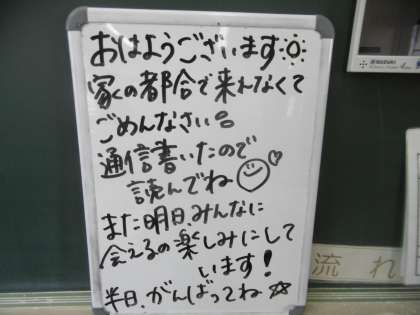 おはようございます
家の都合で来れなくて
ごめんなさい。
通信書いたので
読んでね
また明日、みんなに
会えるの楽しみにして
います!
半日、がんばってね☆
流れ
SUZUKI